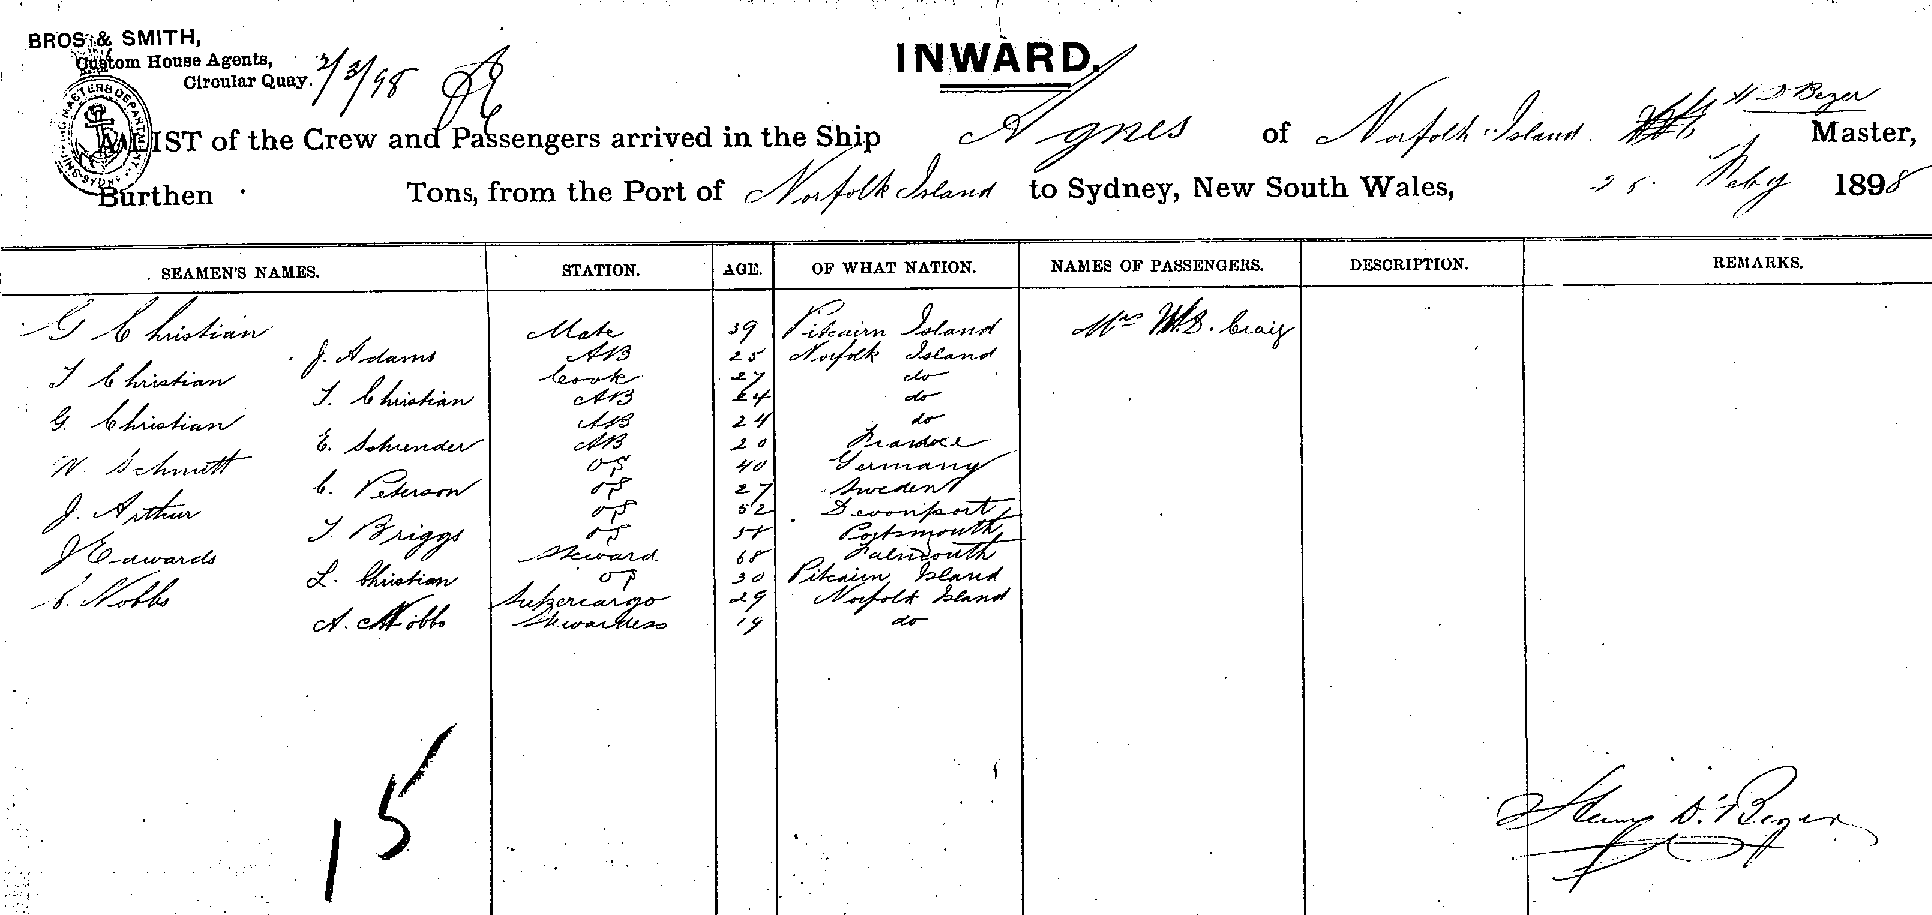 BROS & SMITH,
Custom House Agents,
Circular Quay. 2/3/98
INWARD.
A LIST of the Crew and Passengers arrived in the Ship Agnes of Norfolk Island H D Bezer Master,
Burthen Tons, from the Port of Norfolk Island to Sydney, New South Wales, 28 Feby 1898
SEAMEN'S NAMES. STATION. AGE. OF WHAT NATION. NAMES OF PASSENGERS. DESCRIPTION. REMARKS.
G Christian Mate 39 Pitcairn Island Mrs W.S. Craig
J. Adams AB 25 Norfolk Island
T Christian Cook 27 do
T. Christian AB 24 do
G. Christian AB 24 do
E. Schrender AB 20
W. Schmitt OS 40 Germany
C. Peterson OS 27 Sweden
J. Arthur OS 52 Devonport
T Briggs OS 58 Portsmouth
J Edwards Steward 68 Falmouth
L. Christian OS 30 Pitcairn Island
C. Nobbs Supercargo 29 Norfolk Island
A. Nobbs Stewardess 19 do
15
Henry D. Bezer